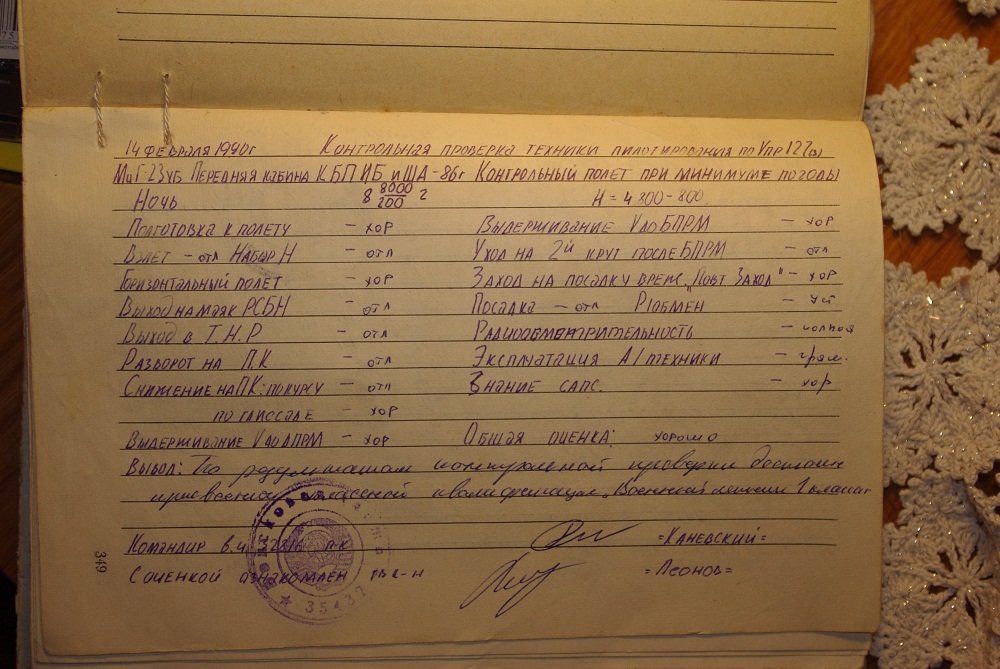 14 февраля 1990г Контрольная проверка техники пилотирования по Упр 127(а)
МиГ-23УБ Передняя кабина КБП ИБ и ША-86г Контрольный полет при минимуме погоды
Ночь 8 8000/200 2 Н = 4800-800.
Подготовка к полету - хор Выдерживание V до БПРМ - хор
Взлет - отл Набор Н - отл Уход на 2й круг после БПРМ - отл
Горизонтальный полет - хор Заход на посадку в реж. "Повт Заход" - хор
Выход на маяк РСБН - отл Посадка - отл Р/обмен - уст
Выход в Т.Н.Р - отл Радиоосмотрительность - полная
Разворот на П.К - отл Эксплуатация А/техники - грам.
Снижение на ПК: по курсу - отл Знание САПС. - хор
по глиссаде - хор
Выдерживание V до ДПРМ - хор Общая оценка: хорошо
Вывод: По результатам контрольной проверки достоин
присвоения классной квалификации "Военный летчик 1 класса"
Командир в.ч п-к =Каневский=
С оценкой ознакомлен =Леонов=
349
35432